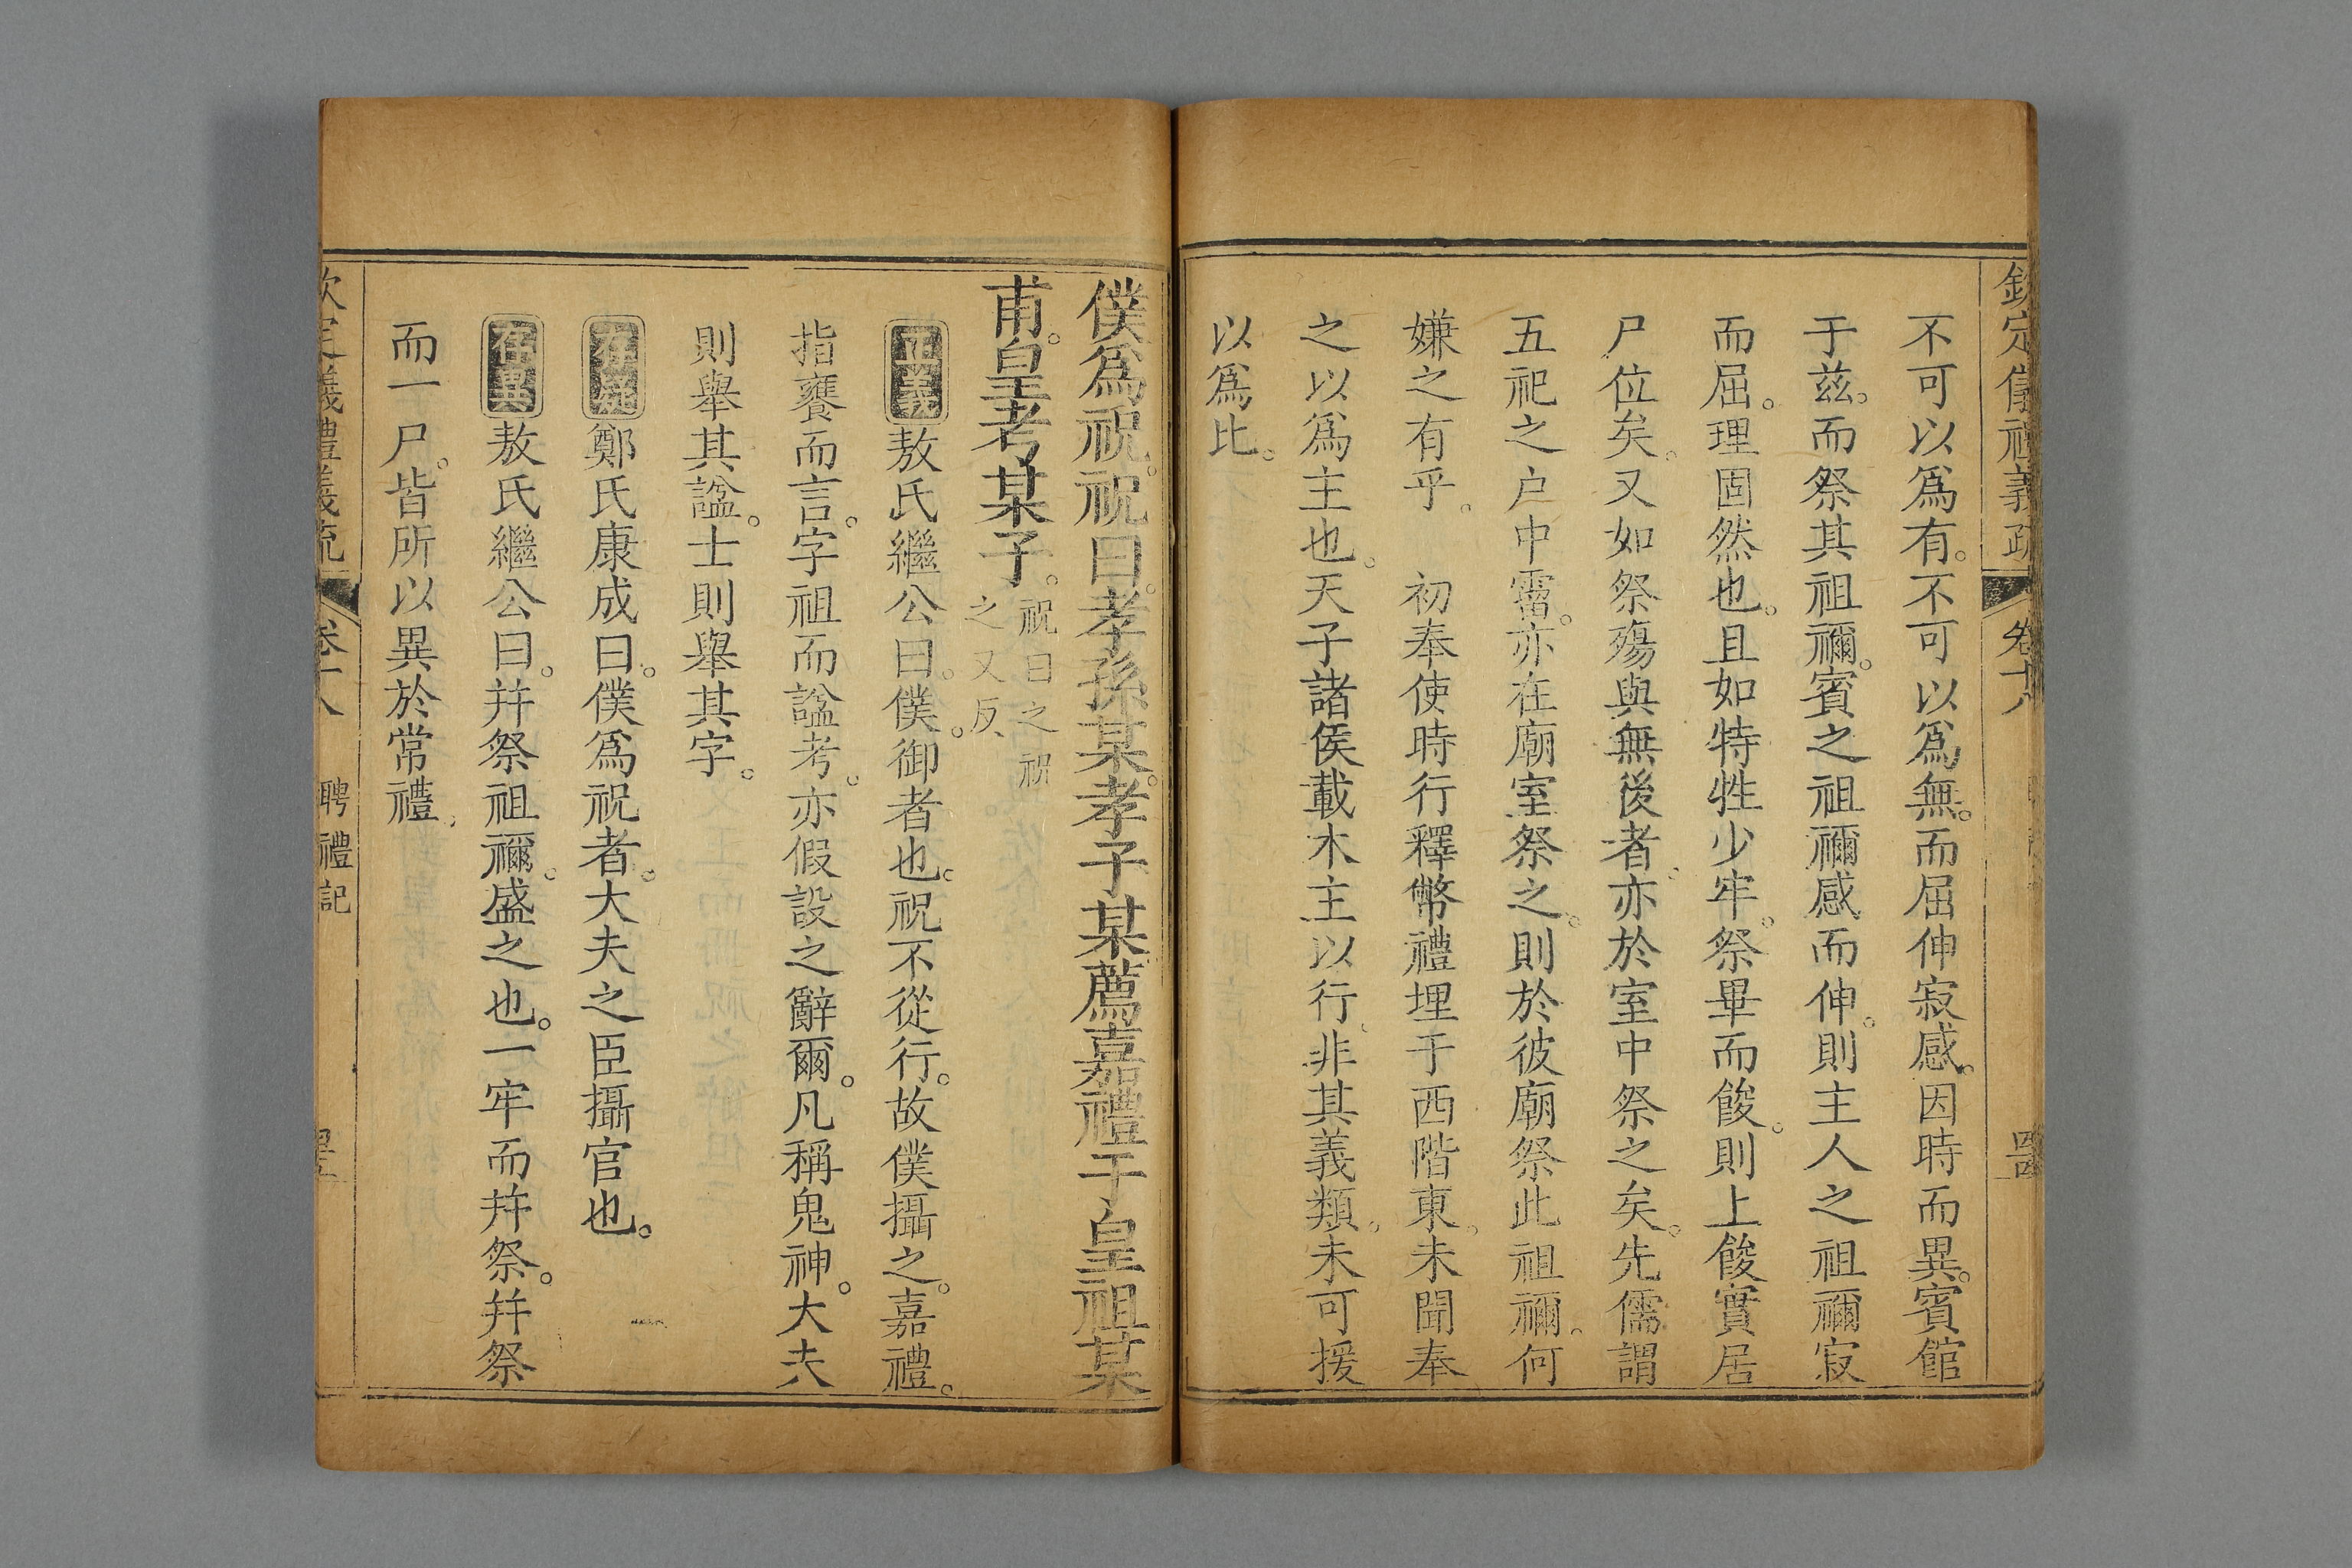 欽定儀禮義疏 卷十八
不可以爲有。不可以爲無。而屈伸寂感。因時而異。賓館
于兹。而祭其祖禰。賓之祖禰感而伸。則主人之祖禰寂
而屈。理固然也。且如特牲少牢。祭畢而餕。則上餕實居
尸位矣。又如祭殤與無後者。亦於室中祭之矣。先儒謂
五祀之户中霤。亦在廟室祭之。則於彼廟祭此祖禰。何
嫌之有乎。 初奉使時行釋幣禮埋于西階東。未聞奉
之以爲主也。天子諸侯載木主以行。非其義類。未可援
以爲比。
僕爲祝。祝曰。孝孫某。孝子某。薦嘉禮于皇祖某
甫。皇考某子。祝曰之祝
之又反
正義敖氏繼公曰。僕。御者也。祝不從行。故僕攝之。嘉禮。
指饔而言。字祖而諡考。亦假設之辭爾。凡稱鬼神。大夫
則舉其諡。士則舉其字。
存疑鄭氏康成曰。僕爲祝者。大夫之臣攝官也。
存異敖氏繼公曰。并祭祖禰。盛之也。一牢而并祭。并祭
而一尸。皆所以異於常禮。
欽定義禮義疏 卷十八 聘禮記